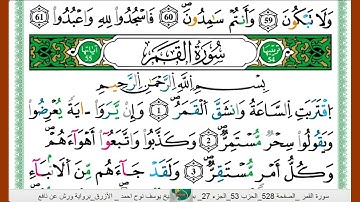 وَلَا تَبْكُونَ 59 وَأَنتُمْ سَٰمِدُونَ 60 فَاسْجُدُوا لِلهِ وَاعْبُدُوا 61
آياتها 55 سُورَةُ الْقَمَرِ ترتيبها 54
بِسْمِ اللَّهِ الرَّحْمَٰنِ الرَّحِيمِ
اقْتَرَبَتِ السَّاعَةُ وَانشَقَّ الْقَمَرُ 1 وَإِنْ يَّرَوْا ءَايَةً يُعْرِضُوا
وَيَقُولُوا سِحْرٌ مُّسْتَمِرٌّ 2 وَكَذَّبُوا وَاتَّبَعُوا أَهْوَآءَهُمْ
وَكُلُّ أَمْرٍ مُّسْتَقِرٌّ 3 وَلَقَدْ جَآءَهُم مِّنَ الْأَنۢبَآءِ
سورة القمر _ الصفحة 528_ الحزب 53_ الجزء 27 _ يوسف نوح احمد _ الأزرق_برواية ورش عن نافع